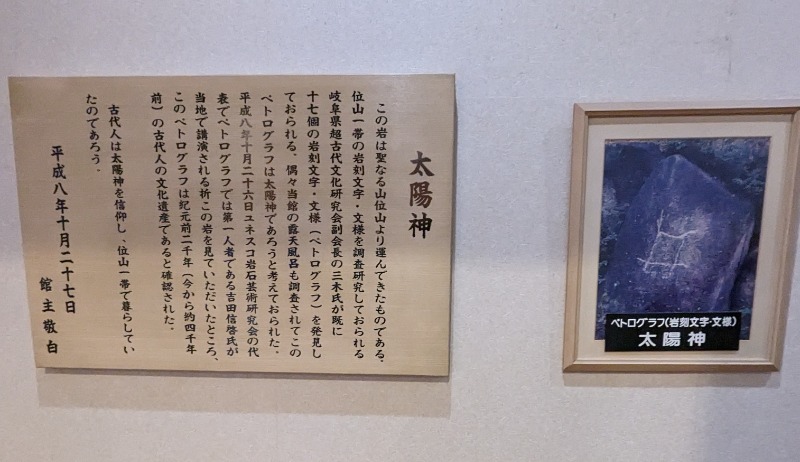 太陽神
この岩は聖なる山位山より運んできたものである。
位山一帯の岩刻文字・文様を調査研究しておられる
岐阜県超古代文化研究会副会長の三木氏が既に
十七個の岩刻文字・文様（ペトログラフ）を発見し
ておられる。偶々当館の露天風呂も調査されてこの
ペトログラフは太陽神であろうと考えておられた。
平成八年十月二十六日ユネスコ岩石芸術研究会の代
表でペトログラフでは第一人者である吉田信啓氏が
当地で講演される折この岩を見ていただいたところ、
このペトログラフは紀元前二千年（今から約四千年
前）の古代人の文化遺産であると確認された。
古代人は太陽神を信仰し、位山一帯で暮らしてい
たのであろう。
平成八年十月二十七日
館主敬白
ペトログラフ(岩刻文字・文様)
太陽神